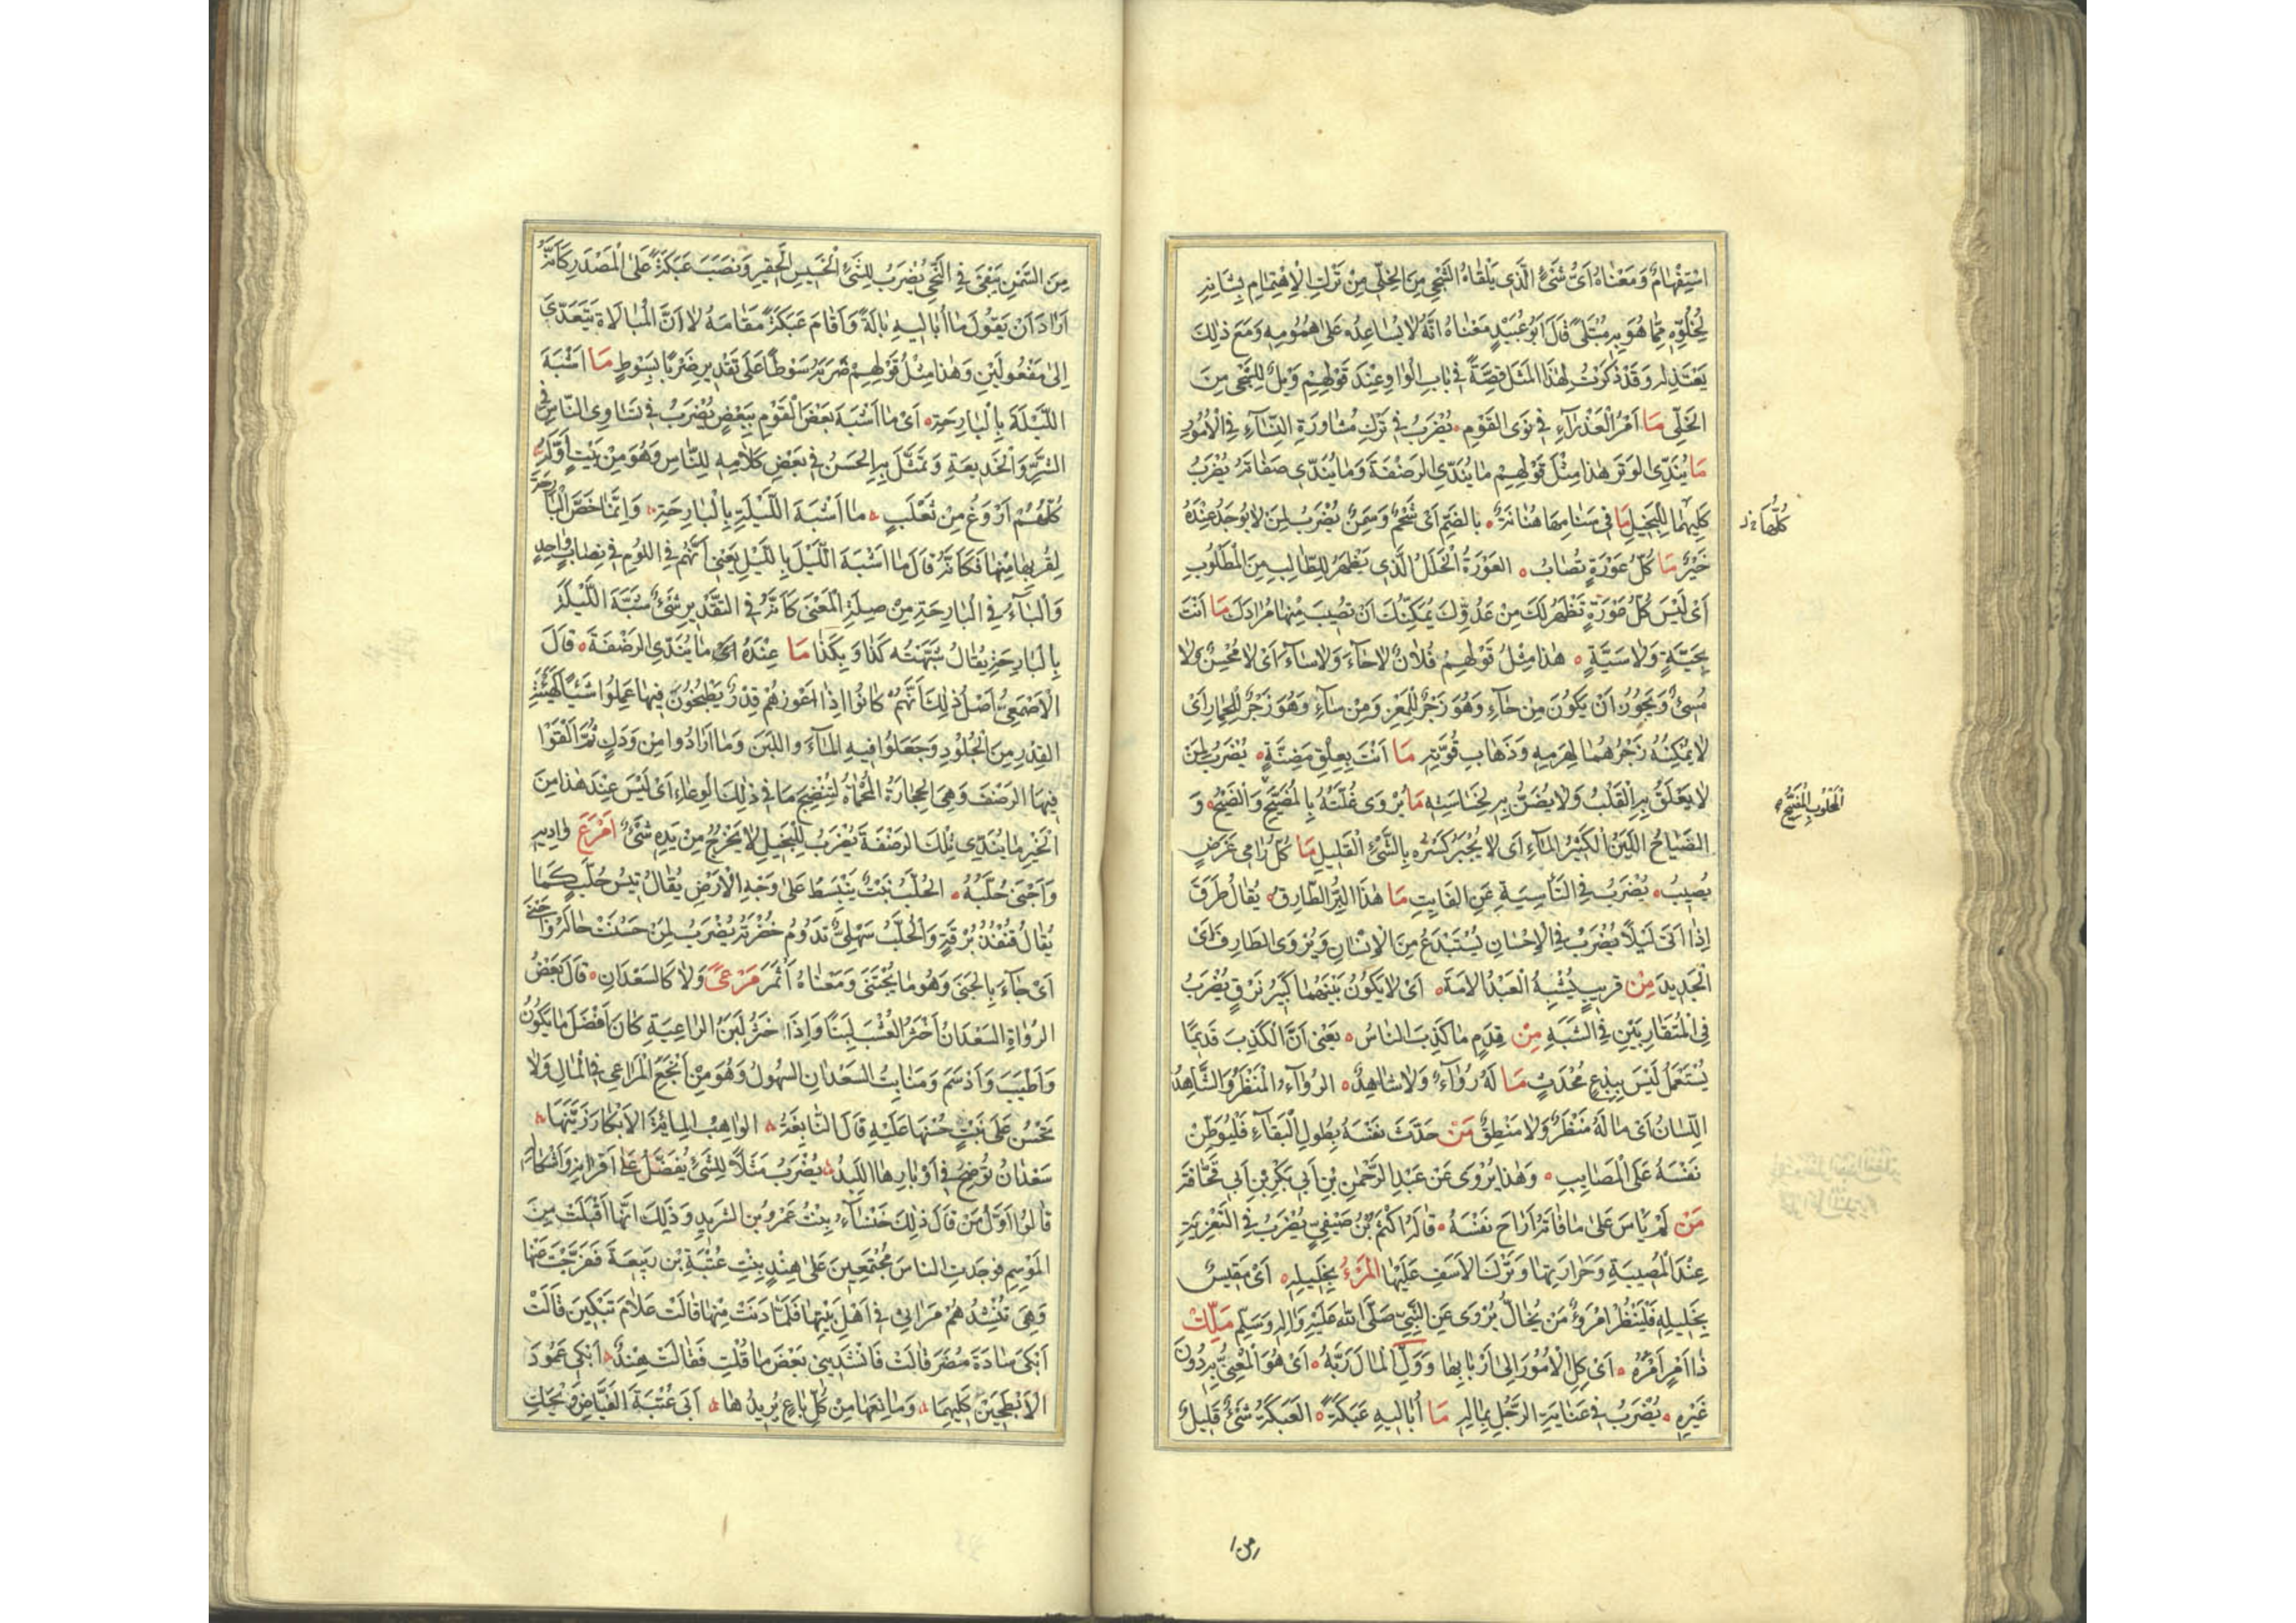 اسْتِفْهَامٌ وَمَعْنَاهُ اَىُّ شَىْءٍ الَّذِى يَلْقَاهُ الشَّجِى مِنَ الْخَلِّى مِنْ تَرْكِ الْاِهْتِمَامِ بِشَانِهِ
لِخُلُوِّهِ مِمَّا هُوَ بِهِ مُبْتَلًى قَالَ اَبُو عُبَيْدٍ مَعْنَاهُ اَنَّهُ لَا يُسَاعِدُهُ عَلَى هُمُومِهِ وَمَعَ ذٰلِكَ
يَعْذِلُهُ وَقَدْ ذَكَرْتُ لِهٰذَا الْمَثَلِ قِصَّةً فِى بَابِ الْوَاوِ عِنْدَ قَوْلِهِمْ وَيْلٌ لِلشَّجِى مِنَ
الْخَلِّى مَا اَمْرُ الْعَذْرَآءِ فِى نَوَى الْقَوْمِ يُضْرَبُ فِى تَرْكِ مُشَاوَرَةِ النِّسَآءِ فِى الْاُمُورِ
مَا يُنَدِّى الْوَتَرَ هٰذَا مِثْلُ قَوْلِهِمْ مَا يُنَدِّى الرَضْفَةَ وَمَا يُنَدِّى صَفَاتَهُ يُضْرَبُ
كِلَيْهِمَا لِلْبَخِيلِ مَا فِى سَنَامِهَا هُنَانَةٌ بِالضَمِّ اَىْ شَحْمٌ وَسِمَنٌ يُضْرَبُ لِمَنْ لَا يُوجَدُ عِنْدَهُ
كُلُّهَا
خَيْرٌ مَا كُلُّ عَوْرَةٍ تُصَابُ الْعَوْرَةُ الْخَلَلُ الَّذِى يَظْهَرُ لِلطَّالِبِ مِنَ الْمَطْلُوبِ
اَىْ لَيْسَ كُلُّ عَوْرَةٍ تَظْهَرُ لَكَ مِنْ عَدُوِّكَ يُمَكِّنُكَ اَنْ تُصِيبَ مِنْهَا مُرَادَكَ مَا اَنْتَ
بِحَيَّةٍ وَلَا سَيَّةٍ هٰذَا مِثْلُ قَوْلِهِمْ فُلَانٌ لَا حَآءَ وَلَا سَآءَ اَىْ لَا مُحْسِنٌ وَلَا
مُسِىْءٌ وَيَجُوزُ اَنْ يَكُونَ مِنْ حَآءِ وَهُوَ زَجْرٌ لِلْمَعْزِ وَمِنْ سَآءِ وَهُوَ زَجْرٌ لِلْحِمَارِ اَىْ
لَا يُمْكِنُهُ زَجْرُهُمَا لِهَرَمِهِ وَذَهَابِ قُوَّتِهِ مَا اَنْتَ بِعِلْقِ مَضِنَّةٍ يُضْرَبُ لِمَنْ
لَا يَعْلَقُ بِهِ الْقَلْبُ وَلَا يُضَنُّ بِهِ لِخَسَاسَتِهِ مَا يُرْوَى غُلَّتُهُ بِالْمُضَيَّحِ وَالضَيْحُ وَ
الضَيَاحُ اللَبَنُ الْكَثِيْرُ الْمَآءِ اَى لَا يُجْبَرُ كَسْرُهُ بِالشَّىْءِ الْقَلِيلِ مَا كُلُّ رَامِى غَرَضٍ
يُصِيبُ يُضْرَبُ فِى التَاْسِيَةِ عَنِ الْفَايِتِ مَا هٰذَا الْبِرُّ الطَارِقُ يُقَالُ طَرَقَ
اِذَا اَتَى لَيْلًا يُضْرَبُ فِى الْاِحْسَانِ يُسْتَبْدَعُ مِنَ الْاِنْسَانِ وَيُرْوَى الطَارِفُ اَىْ
الْجَدِيدُ مِنْ قَرِيبٍ يُشْبِهُ الْعَبْدُ الْاَمَةَ اَىْ لَا يَكُونُ بَيْنَهُمَا كَبِيرُ فَرْقٍ يُضْرَبُ
فِى الْمُتَقَارِبَيْنِ فِى الشَّبَهِ مِنْ قِدَمٍ مَا كَذِبَ النَاسُ يَعْنِى اَنَّ الْكَذِبَ قَدِيمًا
يُسْتَعْمَلُ لَيْسَ بِبِدْعٍ مُحْدَثٍ مَا لَهُ رُوَآءٌ وَلَا شَاهِدٌ الرُوَآءُ الْمَنْظَرُ وَالشَّاهِدُ
اللِّسَانُ اَىْ مَا لَهُ مَنْظَرٌ وَلَا مَنْطِقٌ مَنْ حَدَّثَ نَفْسَهُ بِطُولِ الْبَقَآءِ فَلْيُوَطِّنْ
نَفْسَهُ عَلَى الْمَصَايِبِ وَهٰذَا يُرْوَى عَنْ عَبْدِ الرَّحْمٰنِ بْنِ اَبِى بَكْرِ بْنِ اَبِى قُحَافَةَ
مَنْ لَمْ يَاْسَ عَلَى مَا فَاتَهُ اَرَاحَ نَفْسَهُ قَالَهُ اَكْثَمُ بْنُ صَيْفِىٍّ يُضْرَبُ فِى التَّعْزِيَةِ
عِنْدَ الْمُصِيبَةِ وَحَرَارَتِهَا وَتَرْكِ الْاَسَفِ عَلَيْهَا الْمَرْءُ بِخَلِيلِهِ اَىْ مَقِيسٌ
بِخَلِيلِهِ فَلْيَنْظُرْ امْرُؤٌ مَنْ يُخَالُّ يُرْوَى عَنِ النَّبِىِّ صَلَّى اللهُ عَلَيْهِ وَاٰلِهِ وَسَلَّمَ مَلِّكْ
ذَا اَمْرٍ اَمْرَهُ اَىْ كِلِ الْاُمُورَ اِلَى اَرْبَابِهَا وَوَلِّ الْمَالَ رَبَّهُ اَىْ هُوَ الْمَعْنِىُّ بِهِ دُونَ
غَيْرِهِ يُضْرَبُ فِى عِنَايَةِ الرَّجُلِ بِمَالِهِ مَا اُبَالِيهِ عَبَكَةً الْعَبَكَةُ شَىْءٌ قَلِيلٌ
مِنَ السَّمْنِ يَبْقَى فِى النِّحْىِ يُضْرَبُ لِلشَّىْءِ الْخَسِيسِ الْحَقِيرِ وَنَصَبَ عَبَكَةً عَلَى الْمَصْدَرِ كَاَنَّهُ
اَرَادَ اَنْ يَقُولَ مَا اُبَالِيهِ بَالَةً وَاَقَامَ عَبَكَةً مَقَامَهُ لَا اَنَّ الْمُبَالَاةَ يَتَعَدَّى
اِلَى مَفْعُولَيْنِ وَهٰذَا مِثْلُ قَوْلِهِمْ ضَرَبْتُهُ سَوْطًا عَلَى تَقْدِيرِ ضَرْبًا بِسَوْطٍ مَا اَشْبَهَ
اللَّيْلَةَ بِالْبَارِحَةِ اَىْ مَا اَشْبَهَ بَعْضَ الْقَوْمِ بِبَعْضٍ يُضْرَبُ فِى تَسَاوِى النَّاسِ فِى
الشَّرِّ وَالْخَدِيعَةِ وَتَمَثَّلَ بِهِ الْحَسَنُ فِى بَعْضِ كَلَامِهِ لِلنَّاسِ وَهُوَ مِنْ بَيْتٍ اَوَّلُهُ
كُلُّهُمْ اَرْوَغُ مِنْ ثَعْلَبٍ مَا اَشْبَهَ اللَّيْلَةَ بِالْبَارِحَةِ وَاِنَّمَا خَصَّ الْبَارِحَةَ
لِقُرْبِهَا مِنْهَا فَكَاَنَّهُ قَالَ مَا اَشْبَهَ اللَّيْلَ بِاللَّيْلِ يَعْنِى اَنَّهُمْ فِى اللُؤْمِ فِى نِصَابٍ وَاحِدٍ
وَالْبَآءُ فِى الْبَارِحَةِ مِنْ صِلَةِ الْمَعْنَى كَاَنَّهُ فِى التَقْدِيرِ شَىْءٌ شَبَّهَ اللَّيْلَةَ
بِالْبَارِحَةِ يُقَالُ شَبَّهْتُهُ كَذَا وَبِكَذَا مَا عِنْدَهُ مَا يُنَدِّى الرَضْفَةَ قَالَ
الْاَصْمَعِىُّ اَصْلُ ذٰلِكَ اَنَّهُمْ كَانُوا اِذَا اَعْوَزَهُمْ قِدْرٌ يَطْبُخُونَ فِيهَا عَمِلُوا شَيْئًا كَهَيْئَةِ
الْقِدْرِ مِنَ الْجُلُودِ وَجَعَلُوا فِيهِ الْمَآءَ وَاللَبَنَ وَمَا اَرَادُوا مِنْ وَدَكٍ ثُمَّ اَلْقَوْا
فِيهَا الرَضْفَ وَهِىَ الْحِجَارَةُ الْمُحْمَاةُ لِتُنْضِجَ مَا فِى ذٰلِكَ الْوِعَاءِ اَىْ لَيْسَ عِنْدَ هٰذَا مِنَ
الْخَيْرِ مَا يُنَدِّى تِلْكَ الرَضْفَةَ يُضْرَبُ لِلْبَخِيلِ لَا يَخْرُجُ مِنْ يَدِهِ شَىْءٌ اَمْرَعَ وَادِيهِ
وَاَجْنَى حُلَّبُهُ الْحُلَّبُ نَبْتٌ يَنْبَسِطُ عَلَى وَجْهِ الْاَرْضِ يُقَالُ تَيْسُ حُلَّبٍ كَمَا
يُقَالُ قُنْفُذُ بُرْقَةٍ وَالْحُلَّبُ سَهْلِىٌّ تَدُومُ خُضْرَتُهُ يُضْرَبُ لِمَنْ حَسُنَتْ حَالُهُ وَاَجْنَى
اَىْ جَآءَ بِالْجَنَى وَهُوَ مَا يُجْتَنَى وَمَعْنَاهُ اَثْمَرَ مَرْعًى وَلَا كَالسَعْدَانِ قَالَ بَعْضُ
الرُوَاةِ السَعْدَانُ اَخْثَرُ الْعُشْبِ لَبَنًا وَاِذَا خَثُرَ لَبَنُ الرَاعِيَةِ كَانَ اَفْضَلَ مَا يَكُونُ
وَاَطْيَبَ وَاَدْسَمَ وَمَنَابِتُ السَعْدَانِ السُهُولُ وَهُوَ مِنْ اَنْجَعِ الْمَرَاعِى فِى الْمَالِ وَلَا
تَحْسُنُ عَلَى نَبْتٍ حُسْنَهَا عَلَيْهِ قَالَ النَّابِغَةُ الْوَاهِبُ الْمِايَةَ الْاَبْكَارَ زَيَّنَهَا
سَعْدَانُ تُوضِحُ فِى اَوْبَارِهَا اللِّبَدُ يُضْرَبُ مَثَلًا لِلشَّىْءِ يُفَضَّلُ عَلَى اَقْرَانِهِ وَاَشْكَالِهِ
قَالُوا اَوَّلُ مَنْ قَالَ ذٰلِكَ خَنْسَآءُ بِنْتُ عَمْرِو بْنِ الشَرِيدِ وَذٰلِكَ اَنَّهَا اَقْبَلَتْ مِنَ
الْمَوْسِمِ فَوَجَدَتِ النَاسَ مُجْتَمِعِينَ عَلَى هِنْدٍ بِنْتِ عُتْبَةَ بْنِ رَبِيعَةَ فَعَرَّجَتْ عَنْهَا
وَهِىَ تُنْشِدُهُمْ مَرَاثِىَ فِى اَهْلِ بَيْتِهَا فَلَمَّا دَنَتْ مِنْهَا قَالَتْ عَلَامَ تَبْكِينَ قَالَتْ
اَبْكِى سَادَةَ مُضَرَ قَالَتْ فَانْشِدِينِى بَعْضَ مَا قُلْتِ فَقَالَتْ هِنْدٌ اَبْكِى عَمُودَ
الْاَبْطَحَيْنِ كِلَيْهِمَا وَمَانِعَهَا مِنْ كُلِّ بَاغٍ يُرِيدُهَا اَبِى عُتْبَةَ الْفَيَّاضِ وَيْحَكِ